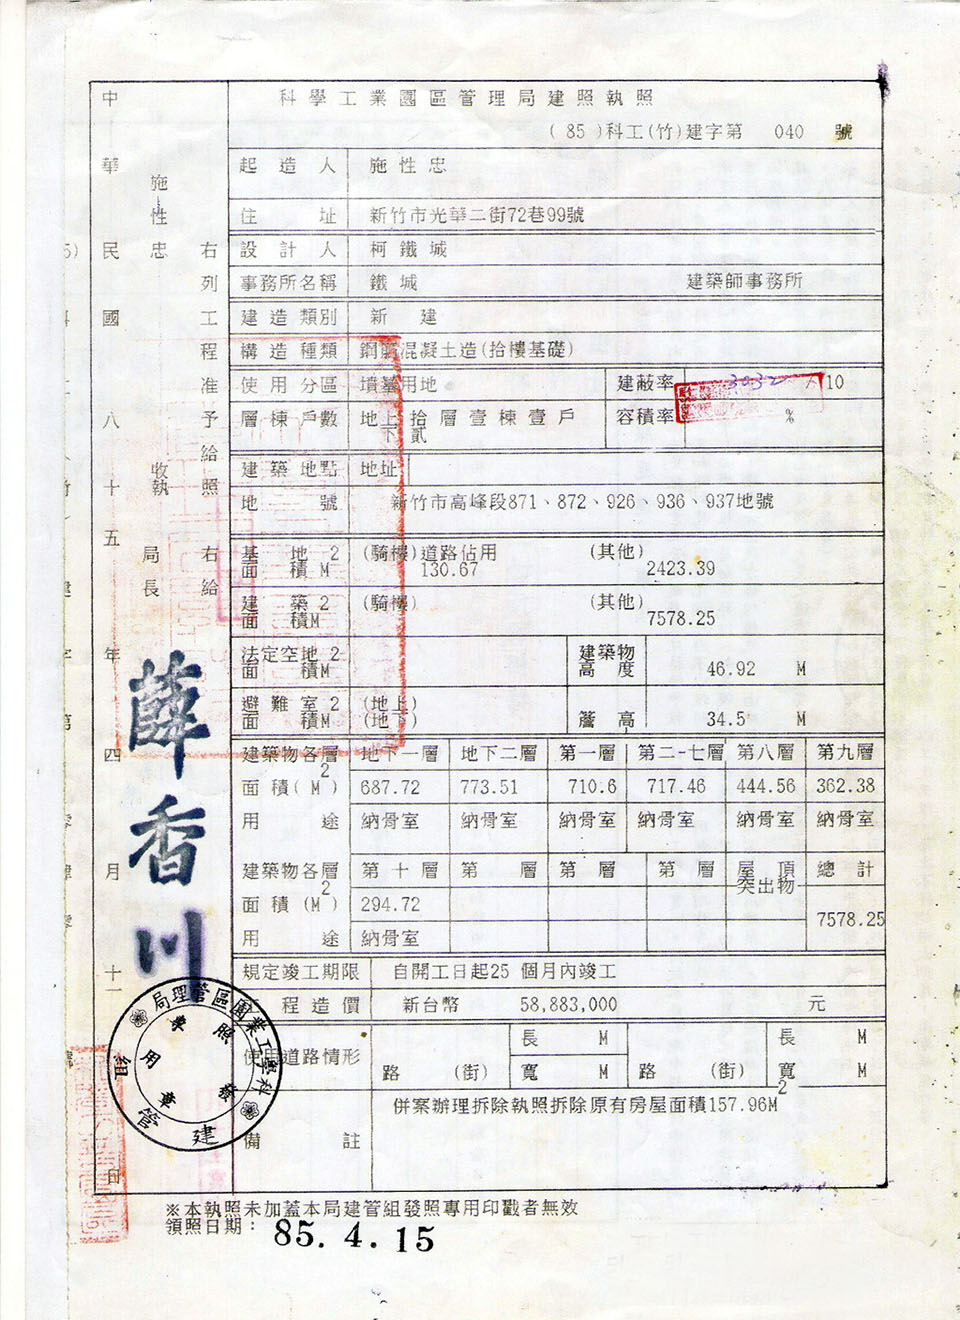 科學工業園區管理局建照執照
( 85 )科工(竹)建字第 040 號
起造人 施性忠
住址 新竹市光華二街72巷99號
設計人 柯鐵城
事務所名稱 鐵城 建築師事務所
建造類別 新建
構造種類 鋼筋混凝土造(拾樓基礎)
使用分區 墳墓用地 建蔽率 /10
層棟戶數 地上拾層壹棟壹戶 容積率 %
下貳
建築地點 地址
地號 新竹市高峰段871、872、926、936、937地號
基地 2 (騎樓)道路佔用 (其他)
面積M 130.67 2423.39
建築 2 (騎樓) (其他)
面積M 7578.25
法定空地 2 建築物
面積M 高度 46.92 M
避難室 2 (地上)
面積M (地下) 簷高 34.5 M
建築物各層 地下一層 地下二層 第一層 第二-七層 第八層 第九層
2
面積( M ) 687.72 773.51 710.6 717.46 444.56 362.38
用途 納骨室 納骨室 納骨室 納骨室 納骨室 納骨室
建築物各層 第十層 第 層 第 層 第 層 屋頂 總計
2 突出物
面積(M ) 294.72 7578.25
用途 納骨室
規定竣工期限 自開工日起25 個月內竣工
程造價 新台幣 58,883,000 元
使用道路情形 路 (街) 長 M 寬 M 路 (街) 長 M 寬 M
2
併案辦理拆除執照拆除原有房屋面積157.96M
備註
右列工程准予給照
右給
施性忠 收執
局長
薛香川
中華民國八十五年四月十一日
科學工業園區管理局
建管組
發照專用章
※本執照未加蓋本局建管組發照專用印戳者無效
領照日期： 85. 4. 15